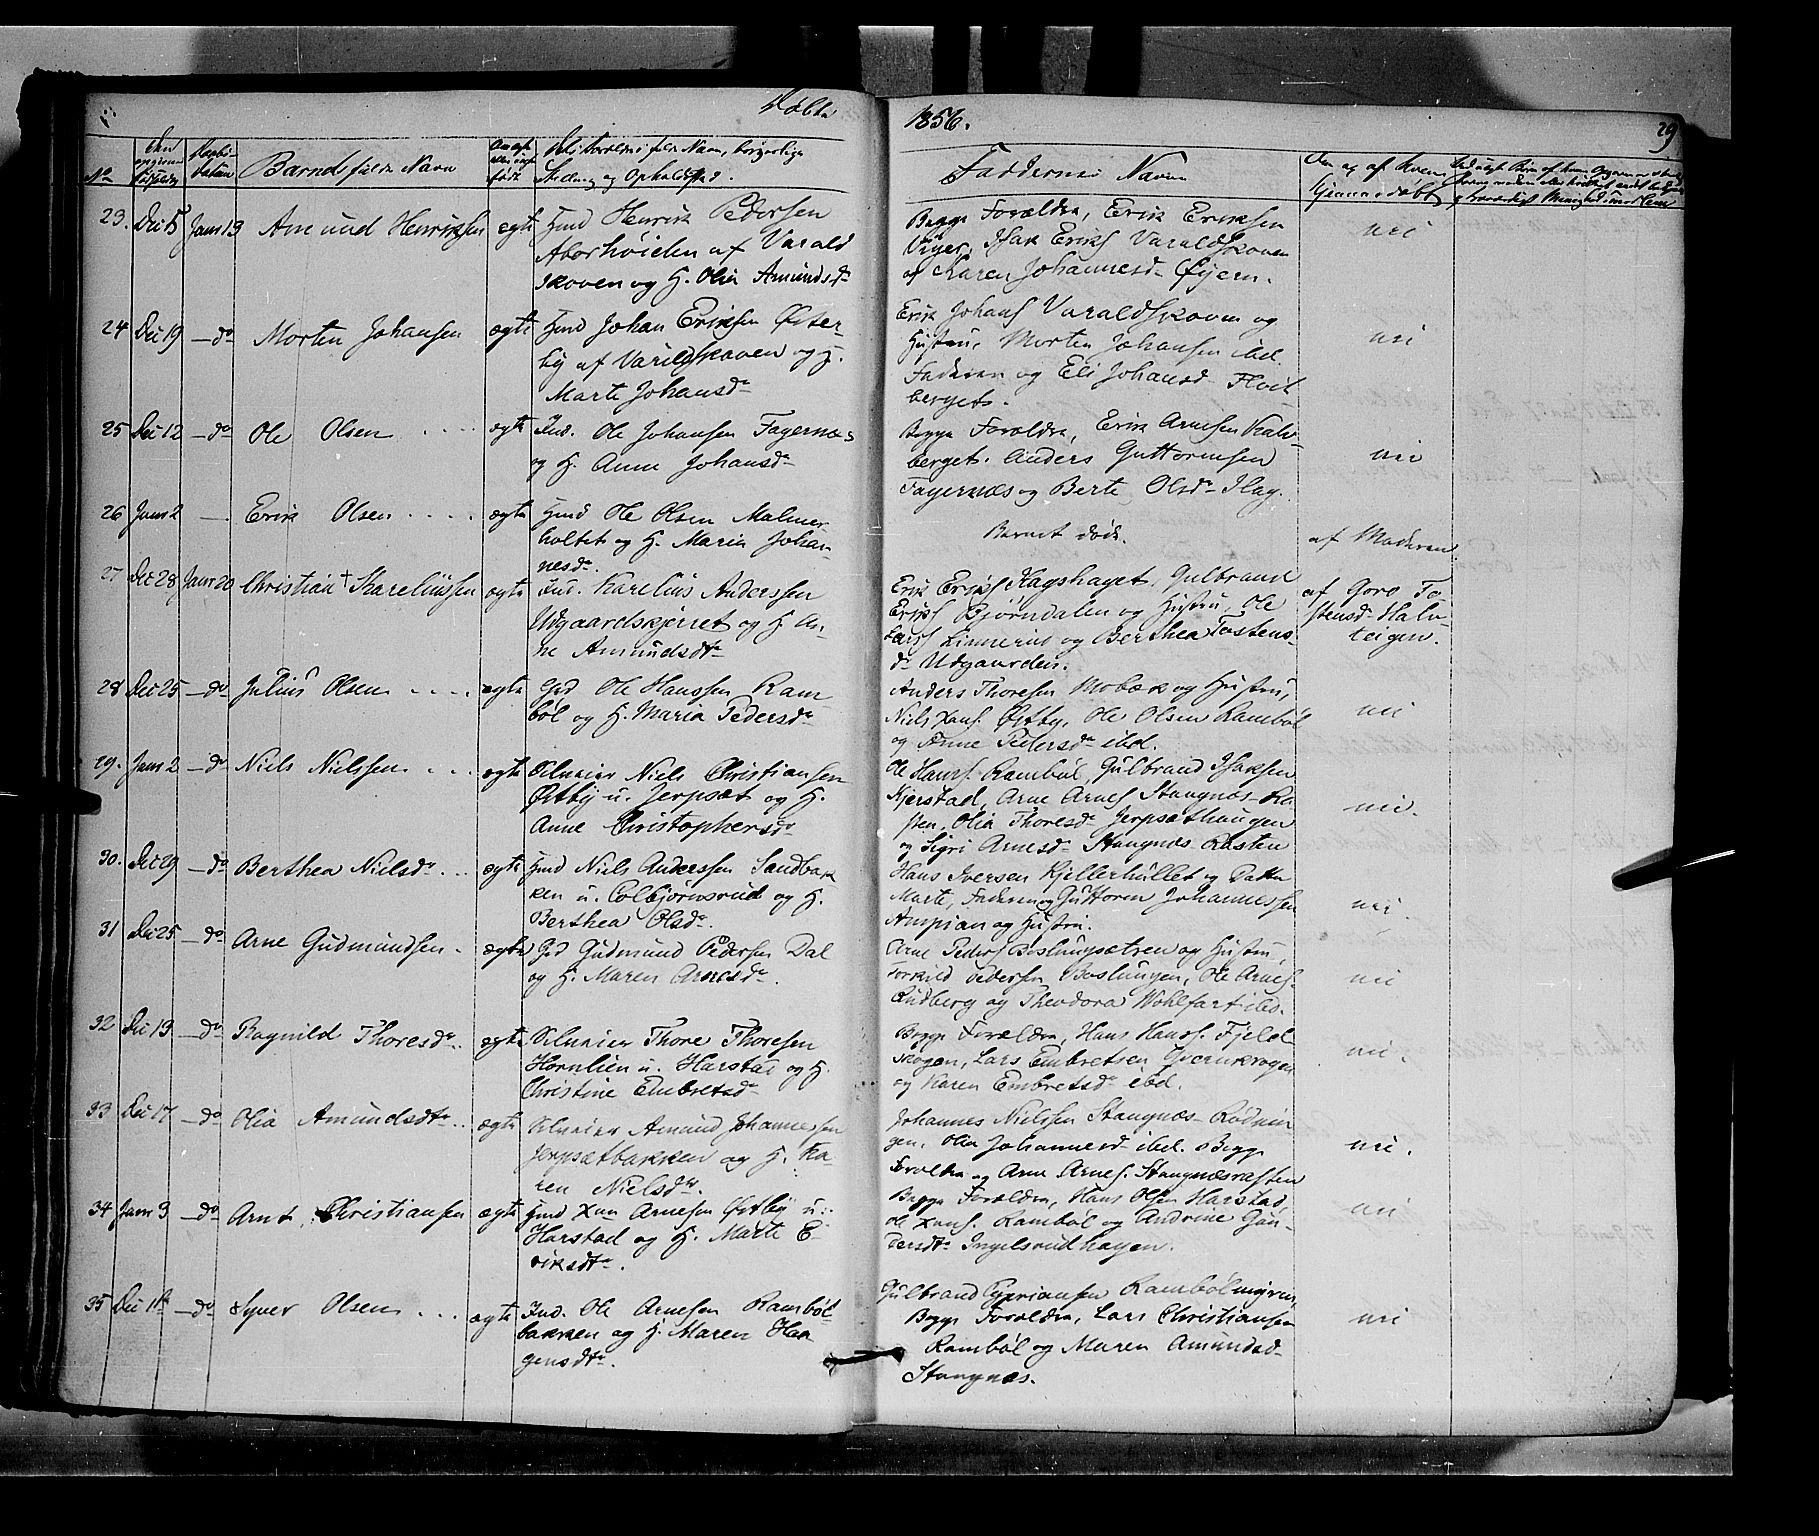 Døbte
1856.
29
No
Barnets fulde Navn
Faddernes Navne
23. Dec 15 Janr 13 Amund Henriksen ægte Huusmd Henrik Pedersen
Aborhøiden af Varald
skoven og H. Olia Amundsdr
Begge Forældre, Erik Eriksen
Viger, Isak Eriks Varaldskoven
og Karen Johannesd Øyern.
nei
24 Dec 19 — do Morten Johansen ægte Huusmd Johan Eriksen Øster-
by af Varaldskoven og H.
Marte Johansdr
Erik Johans Varaldskoven og
Hustru, Morten Johansen ibd
Faderen og Eli Johansd Hvit
berget.
nei
25 Dec 12 — do Ole Olsen ægte Ind. Ole Johansen Fagernæs
og H. Anne Johansdr
Begge Forældre, Erik Arnesen Kalv-
berget. Anders Guttormsen
Fagernæs og Berte Olsdr Ilag.
nei
26 Janr 2 — Erik Olsen ægte Huusmd Ole Olsen Malmer
holtet og H. Maria Johan-
nesdr.
Barnet døde.
af Moderen
27 Dec 28 Janr 20 Christian + Kareliussen ægte Ind. Karelius Anderssen
Udgaardskjerret og H. An-
ne Amundsdtr
Erik Eriks Kagshaget, Gulbrand
Eriks Bjørndalen og Hustru, Ole
Lars Linnerud og Berthea Tostens-
dr Udgaarden.
af Goro To-
stensd Halv-
teigen.
28 Dec 25 — do Julius Olsen ægte Grd Ole Hanssen Ram
bøl og H. Maria Pedersdr
Anders Thoresen Mobæk og Hustru,
Niels Hans. Østby, Ole Olsen Rambøl
og Anne Pedersdr ibd.
nei
29. Janr 2 — do Niels Nielssen ægte Selveier Niels Christiansen
Østby u. Jerpsæt og H.
Anne Christophersdr
Ole Hans. Rambøl, Gulbrand Isaksen
Kjerstad, Arne Arnes Stangnæs-Ra-
sten, Olia Thoresdr Jerpsæthaugen
og Sigri Arnesdr Stangnæs-Rasten
nei.
30. Dec 29 — do Berthea Nielsdr ægte Huusmd Niels Anderssen Sandbak
ken u. Colbjørnsrud og H.
Berthea Olsdr.
Hans Iversen Kjellerhullet og Datter
Marte, Faderen og Guttorm Johannessen
Ampian og Hustru.
nei.
31 Dec 25 — do Arne Gudmundsen ægte Grd Gudmund Pedersen Dal
og H. Maren Arnesdr.
Arne Peders Boslungsætren og Hustru,
Torkild Pedersen Boslungen, Ole Arnes
Rudberg og Theodora Wohlfart ibd.
nei
32 Dec 13 — do Ragnild Thoresdr ægte Selveier Thore Thoresen
Hornlien u. Harstad og H.
Christine Embretsdr
Begge Forældre, Hans Hans. Fjeld
skogen, Lars Embretsen Tvernkrogen
og Karen Embretsdr ibd.
nei.
33 Dec 17 — do Olia Amundsdtr ægte Selveier Amund Johannessen
Jerpsætbakken og H. Ka-
ren Nielsdr.
Johannes Nielssen Stangnæs-Rødnin
gen, Olia Johannesd ibd. Begge
Forældre og Arne Arnes. Stangnæsrasten
nei.
34 Janr 3 — do Arnt Christiansen ægte Huusmd Xan Arnesen Østby u.
Harstad og H. Marte E-
riksdtr.
Begge Forældre, Hans Olsen Harstad,
Ole Hans. Rambøl og Andrine Gun-
dersdtr Ingelsrudhagen.
nei
35 Dec 11 — do Syver Olsen ægte Ind. Ole Arnesen Rambøl
bakken og H. Maren Haa
gensdtr.
Gulbrand Cypriansen Rambølmyren,
Begge Forældre, Lars Christiansen
Rambøl og Maren Amundsd
Stangnæs.
nei